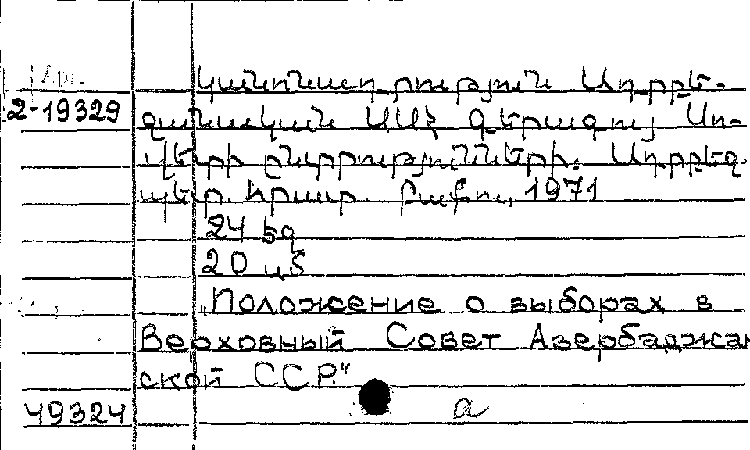 Կանոնադրություն Ադրբե-
2-19329 ջանական ՍՍՀ Գերագույ Սո-
վետի ընտրությունների. Ադրբեջ.
պետ. հրատ. Բաքու, 1971
24 էջ
20 սմ
„Положение о выборах в
Верховный Совет Азербаджан
ской ССР"
49324 а